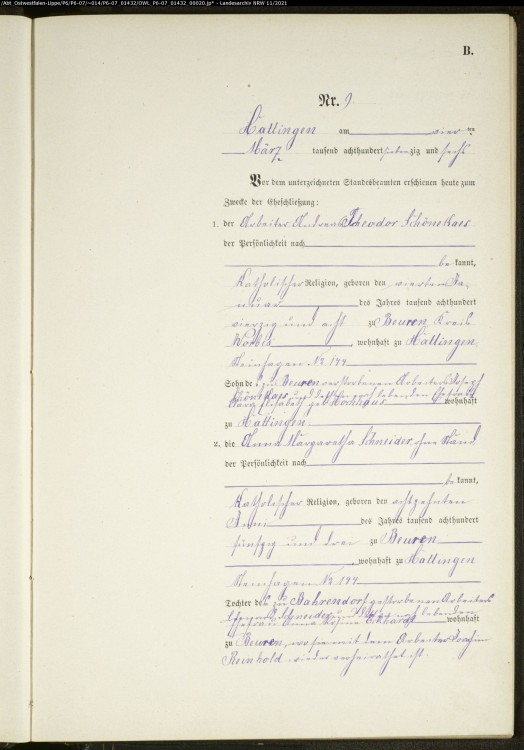 /Abt_Ostwestfalen-Lippe/P6/P6-07/~014/P6-07_01432/OWL_P6-07_01432_00020.jp* - Landesarchiv NRW 11/2021
B.
Nr. 9
Hattingen am vier
März tausend achthundert siebenzig und sechs
Vor dem unterzeichneten Standesbeamten erschienen heute zum
Zwecke der Eheschließung:
1. der Arbeiter Andreas Theodor Schönekaes
der Persönlichkeit nach
be kannt,
katholischer Religion, geboren den vierten Ja-
nuar des Jahres tausend achthundert
vierzig und acht zu Beuren, Kreis
Worbis, wohnhaft zu Hattingen,
Steinhagen No 144
Sohn des zu Beuren verstorbenen Arbeiters Joseph
Schönekaes und dessen noch lebenden Ehefrau
Hochhaus wohnhaft
zu Hattingen
2. die Anna Margaretha Schneider, ohne Stand
der Persönlichkeit nach
be kannt,
katholischer Religion, geboren den achtzehnten
Juni des Jahres tausend achthundert
fünfzig und drei zu Beuren
, wohnhaft zu Hattingen
Steinhagen No 144
Tochter des zu Bahrendorf gestorbenen Arbeiters
Schneider und dessen noch lebenden
Ehefrau Anna Eckhardt wohnhaft
zu Beuren, wo sie mit dem Arbeiter Joachim
Reinhold wieder verheirathet ist.